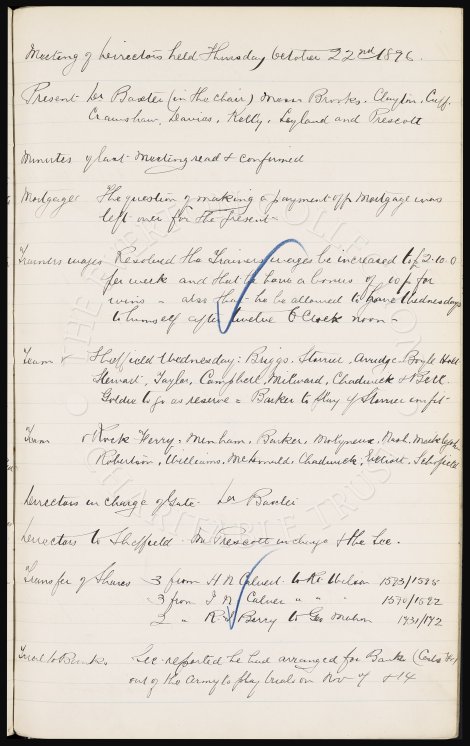 Meeting of Directors held Thursday October 22nd 1896.
Present Dr Baxter (in the Chair) Messrs Brooks. Clayton, Cuff.
Crawshaw, Davies, Kelly, Leyland and Prescott
Minutes of last Meeting read & confirmed
Mortgage The question of making a payment off Mortgage was
left over for the present -
Trainers wages Resolved the Trainers wages be increased to £2-10-0
per week and that he have a bonus of 10/- for
wins - also that he be allowed to have Wednesdays
to himself after twelve O'Clock noon -
Team v Sheffield Wednesday: Briggs, Storrier, Arridge, Boyle Holt
Stewart, Taylor, Campbell, Milward, Chadwick & Bell.
Goldie to go as reserve = Barker to play if Storrier unfit -
Team v Rock Ferry. Menham, Barker, Molyneux, Nash. Meiklejohn
Robertson, Williams, McDonald, Chadwick, Elliott, Schofield
Directors in charge of Gate - Dr Baxter
Directors to Sheffield - Mr Prescott in charge & the Sec.
Transfer of Shares 3 from H N Calvert to Wilson 1593/1595
3 from " " " 1590/1592
2 " Berry to Geo Mahon
Trial to Banks. Sec reported he had arranged for Banks
out of the Army to play trials on Nov 7 & 14
THE EVERTON COLLECTION
CHARITABLE TRUST